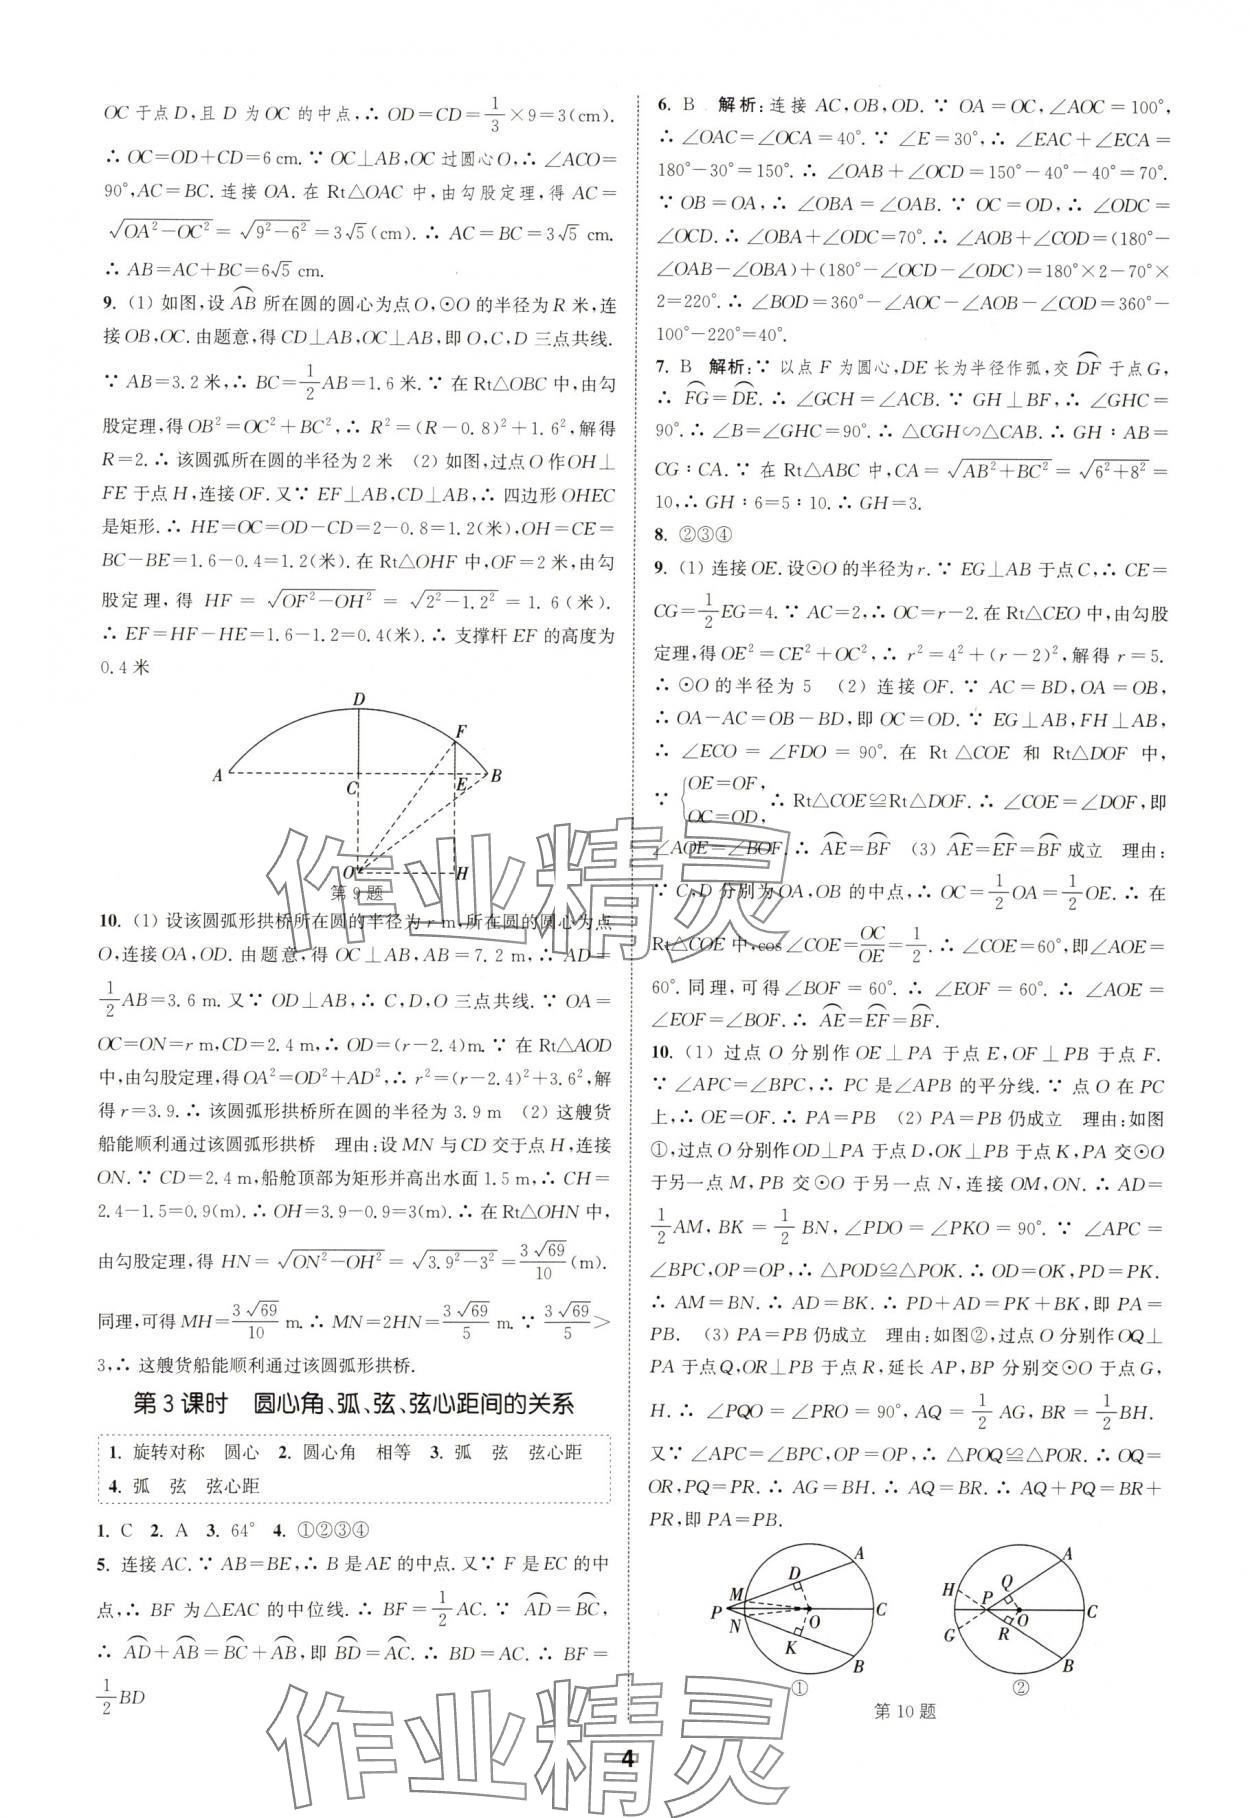 OC 于点 D,且 D 为 OC 的中点,∴ OD=CD=1/3×9=3(cm).
∴ OC=OD+CD=6 cm.∵ OC⊥AB,OC 过圆心O,∴ ∠ACO=
90°,AC=BC. 连接 OA. 在 Rt△OAC 中,由勾股定理,得 AC=
√(OA²-OC²)=√(9²-6²)=3√5(cm).∴ AC=BC=3√5 cm.
∴ AB=AC+BC=6√5 cm.
9. (1) 如图,设 AB⌒ 所在圆的圆心为点 O,⊙O 的半径为 R 米,连
接 OB,OC. 由题意,得 CD⊥AB,OC⊥AB,即 O,C,D 三点共线.
∵ AB=3.2 米,∴ BC=1/2AB=1.6 米.∵ 在 Rt△OBC 中,由勾
股定理,得 OB²=OC²+BC²,∴ R²=(R-0.8)²+1.6²,解得
R=2.∴ 该圆弧所在圆的半径为 2 米 (2) 如图,过点 O 作 OH⊥
FE 于点 H,连接 OF. 又∵ EF⊥AB,CD⊥AB,∴ 四边形 OHEC
是矩形.∴ HE=OC=OD-CD=2-0.8=1.2(米),OH=CE=
BC-BE=1.6-0.4=1.2(米). 在 Rt△OHF 中,OF=2 米,由勾
股定理,得 HF=√(OF²-OH²)=√(2²-1.2²)=1.6(米).
∴ EF=HF-HE=1.6-1.2=0.4(米).∴ 支撑杆 EF 的高度为
0.4 米
D
F
A
C
E
B
O
H
第 9 题
10. (1) 设该圆弧形拱桥所在圆的半径为 r m,所在圆的圆心为点
O,连接 OA,OD. 由题意,得 OC⊥AB,AB=7.2 m,∴ AD=
1/2AB=3.6 m. 又∵ OD⊥AB,∴ C,D,O 三点共线.∵ OA=
OC=ON=r m,CD=2.4 m,∴ OD=(r-2.4)m.∵ 在 Rt△AOD
中,由勾股定理,得 OA²=OD²+AD²,∴ r²=(r-2.4)²+3.6²,解
得 r=3.9.∴ 该圆弧形拱桥所在圆的半径为 3.9 m (2) 这艘货
船能顺利通过该圆弧形拱桥 理由:设 MN 与 CD 交于点 H,连接
ON.∵ CD=2.4 m,船舱顶部为矩形并高出水面 1.5 m,∴ CH=
2.4-1.5=0.9(m).∴ OH=3.9-0.9=3(m).∴ 在 Rt△OHN 中,
由勾股定理,得 HN=√(ON²-OH²)=√(3.9²-3²)=3√69/10(m).
同理,可得 MH=3√69/10 m.∴ MN=2HN=3√69/5 m.∵ 3√69/5>
3,∴ 这艘货船能顺利通过该圆弧形拱桥.
第 3 课时 圆心角、弧、弦、弦心距间的关系
1. 旋转对称 圆心 2. 圆心角 相等 3. 弧 弦 弦心距
4. 弧 弦 弦心距
1. C 2. A 3. 64° 4. ①②③④
5. 连接 AC.∵ AB=BE,∴ B 是 AE 的中点. 又∵ F 是 EC 的中
点,∴ BF 为△EAC 的中位线.∴ BF=1/2AC.∵ AD⌒=BC⌒,
∴ AD⌒+AB⌒=BC⌒+AB⌒,即 BD⌒=AC⌒.∴ BD=AC.∴ BF=
1/2BD
6. B 解析:连接 AC,OB,OD.∵ OA=OC,∠AOC=100°,
∴ ∠OAC=∠OCA=40°.∵ ∠E=30°,∴ ∠EAC+∠ECA=
180°-30°=150°.∴ ∠OAB+∠OCD=150°-40°-40°=70°.
∵ OB=OA,∴ ∠OBA=∠OAB.∵ OC=OD,∴ ∠ODC=
∠OCD.∴ ∠OBA+∠ODC=70°.∴ ∠AOB+∠COD=(180°-
∠OAB-∠OBA)+(180°-∠OCD-∠ODC)=180°×2-70°×
2=220°.∴ ∠BOD=360°-∠AOC-∠AOB-∠COD=360°-
100°-220°=40°.
7. B 解析:∵ 以点 F 为圆心,DE 长为半径作弧,交 DF⌒ 于点 G,
∴ FG⌒=DE⌒.∴ ∠GCH=∠ACB.∵ GH⊥BF,∴ ∠GHC=
90°.∴ ∠B=∠GHC=90°.∴ △CGH∽△CAB.∴ GH∶AB=
CG∶CA.∵ 在 Rt△ABC 中,CA=√(AB²+BC²)=√(6²+8²)=
10,∴ GH∶6=5∶10.∴ GH=3.
8. ②③④
9. (1) 连接 OE. 设⊙O 的半径为 r.∵ EG⊥AB 于点 C,∴ CE=
CG=1/2EG=4.∵ AC=2,∴ OC=r-2. 在 Rt△CEO 中,由勾股
定理,得 OE²=CE²+OC²,∴ r²=4²+(r-2)²,解得 r=5.
∴ ⊙O 的半径为 5 (2) 连接 OF.∵ AC=BD,OA=OB,
∴ OA-AC=OB-BD,即 OC=OD.∵ EG⊥AB,FH⊥AB,
∴ ∠ECO=∠FDO=90°. 在 Rt△COE 和 Rt△DOF 中,
∵ {OE=OF, OC=OD, ∴ Rt△COE≌Rt△DOF.∴ ∠COE=∠DOF,即
∠AOE=∠BOF.∴ AE⌒=BF⌒ (3) AE⌒=EF⌒=BF⌒成立 理由:
∵ C,D 分别为 OA,OB 的中点,∴ OC=1/2OA=1/2OE.∴ 在
Rt△COE 中,cos∠COE=OC/OE=1/2.∴ ∠COE=60°,即∠AOE=
60°. 同理,可得∠BOF=60°.∴ ∠EOF=60°.∴ ∠AOE=
∠EOF=∠BOF.∴ AE⌒=EF⌒=BF⌒.
10. (1) 过点 O 分别作 OE⊥PA 于点 E,OF⊥PB 于点 F.
∵ ∠APC=∠BPC,∴ PC 是∠APB 的平分线.∵ 点 O 在 PC
上,∴ OE=OF.∴ PA=PB (2) PA=PB 仍成立 理由:如图
①,过点 O 分别作 OD⊥PA 于点 D,OK⊥PB 于点 K,PA 交⊙O
于另一点 M,PB 交⊙O 于另一点 N,连接 OM,ON.∴ AD=
1/2AM,BK=1/2BN,∠PDO=∠PKO=90°.∵ ∠APC=
∠BPC,OP=OP,∴ △POD≌△POK.∴ OD=OK,PD=PK.
∴ AM=BN.∴ AD=BK.∴ PD+AD=PK+BK,即 PA=
PB. (3) PA=PB 仍成立 理由:如图②,过点 O 分别作 OQ⊥
PA 于点 Q,OR⊥PB 于点 R,延长 AP,BP 分别交⊙O 于点 G,
H.∴ ∠PQO=∠PRO=90°,AQ=1/2AG,BR=1/2BH.
又∵ ∠APC=∠BPC,OP=OP,∴ △POQ≌△POR.∴ OQ=
OR,PQ=PR.∴ AG=BH.∴ AQ=BR.∴ AQ+PQ=BR+
PR,即 PA=PB.
A
D
M
P
O
C
N
K
B
①
A
H
Q
P
O
C
G
R
B
②
第 10 题
作业精灵
作业精灵
4